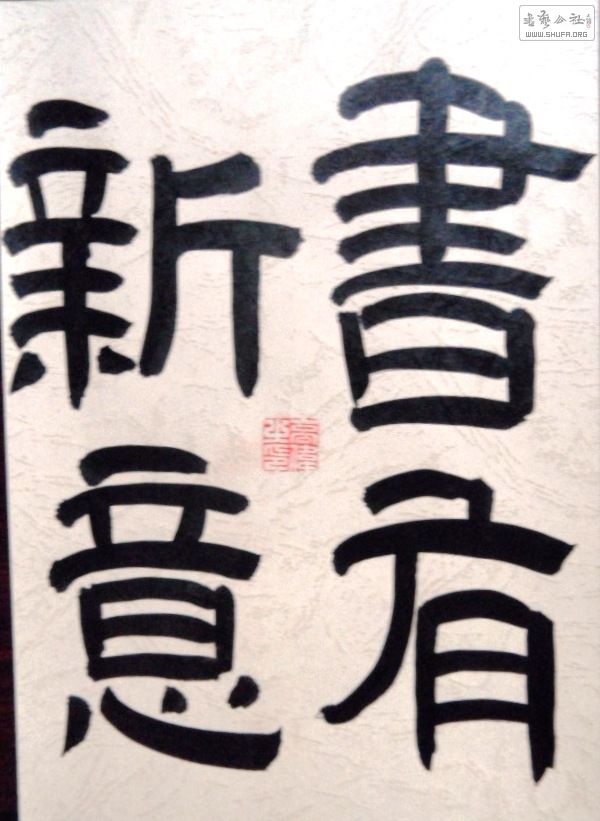 書有
新意
書藝公社
WWW.SHUFA.ORG